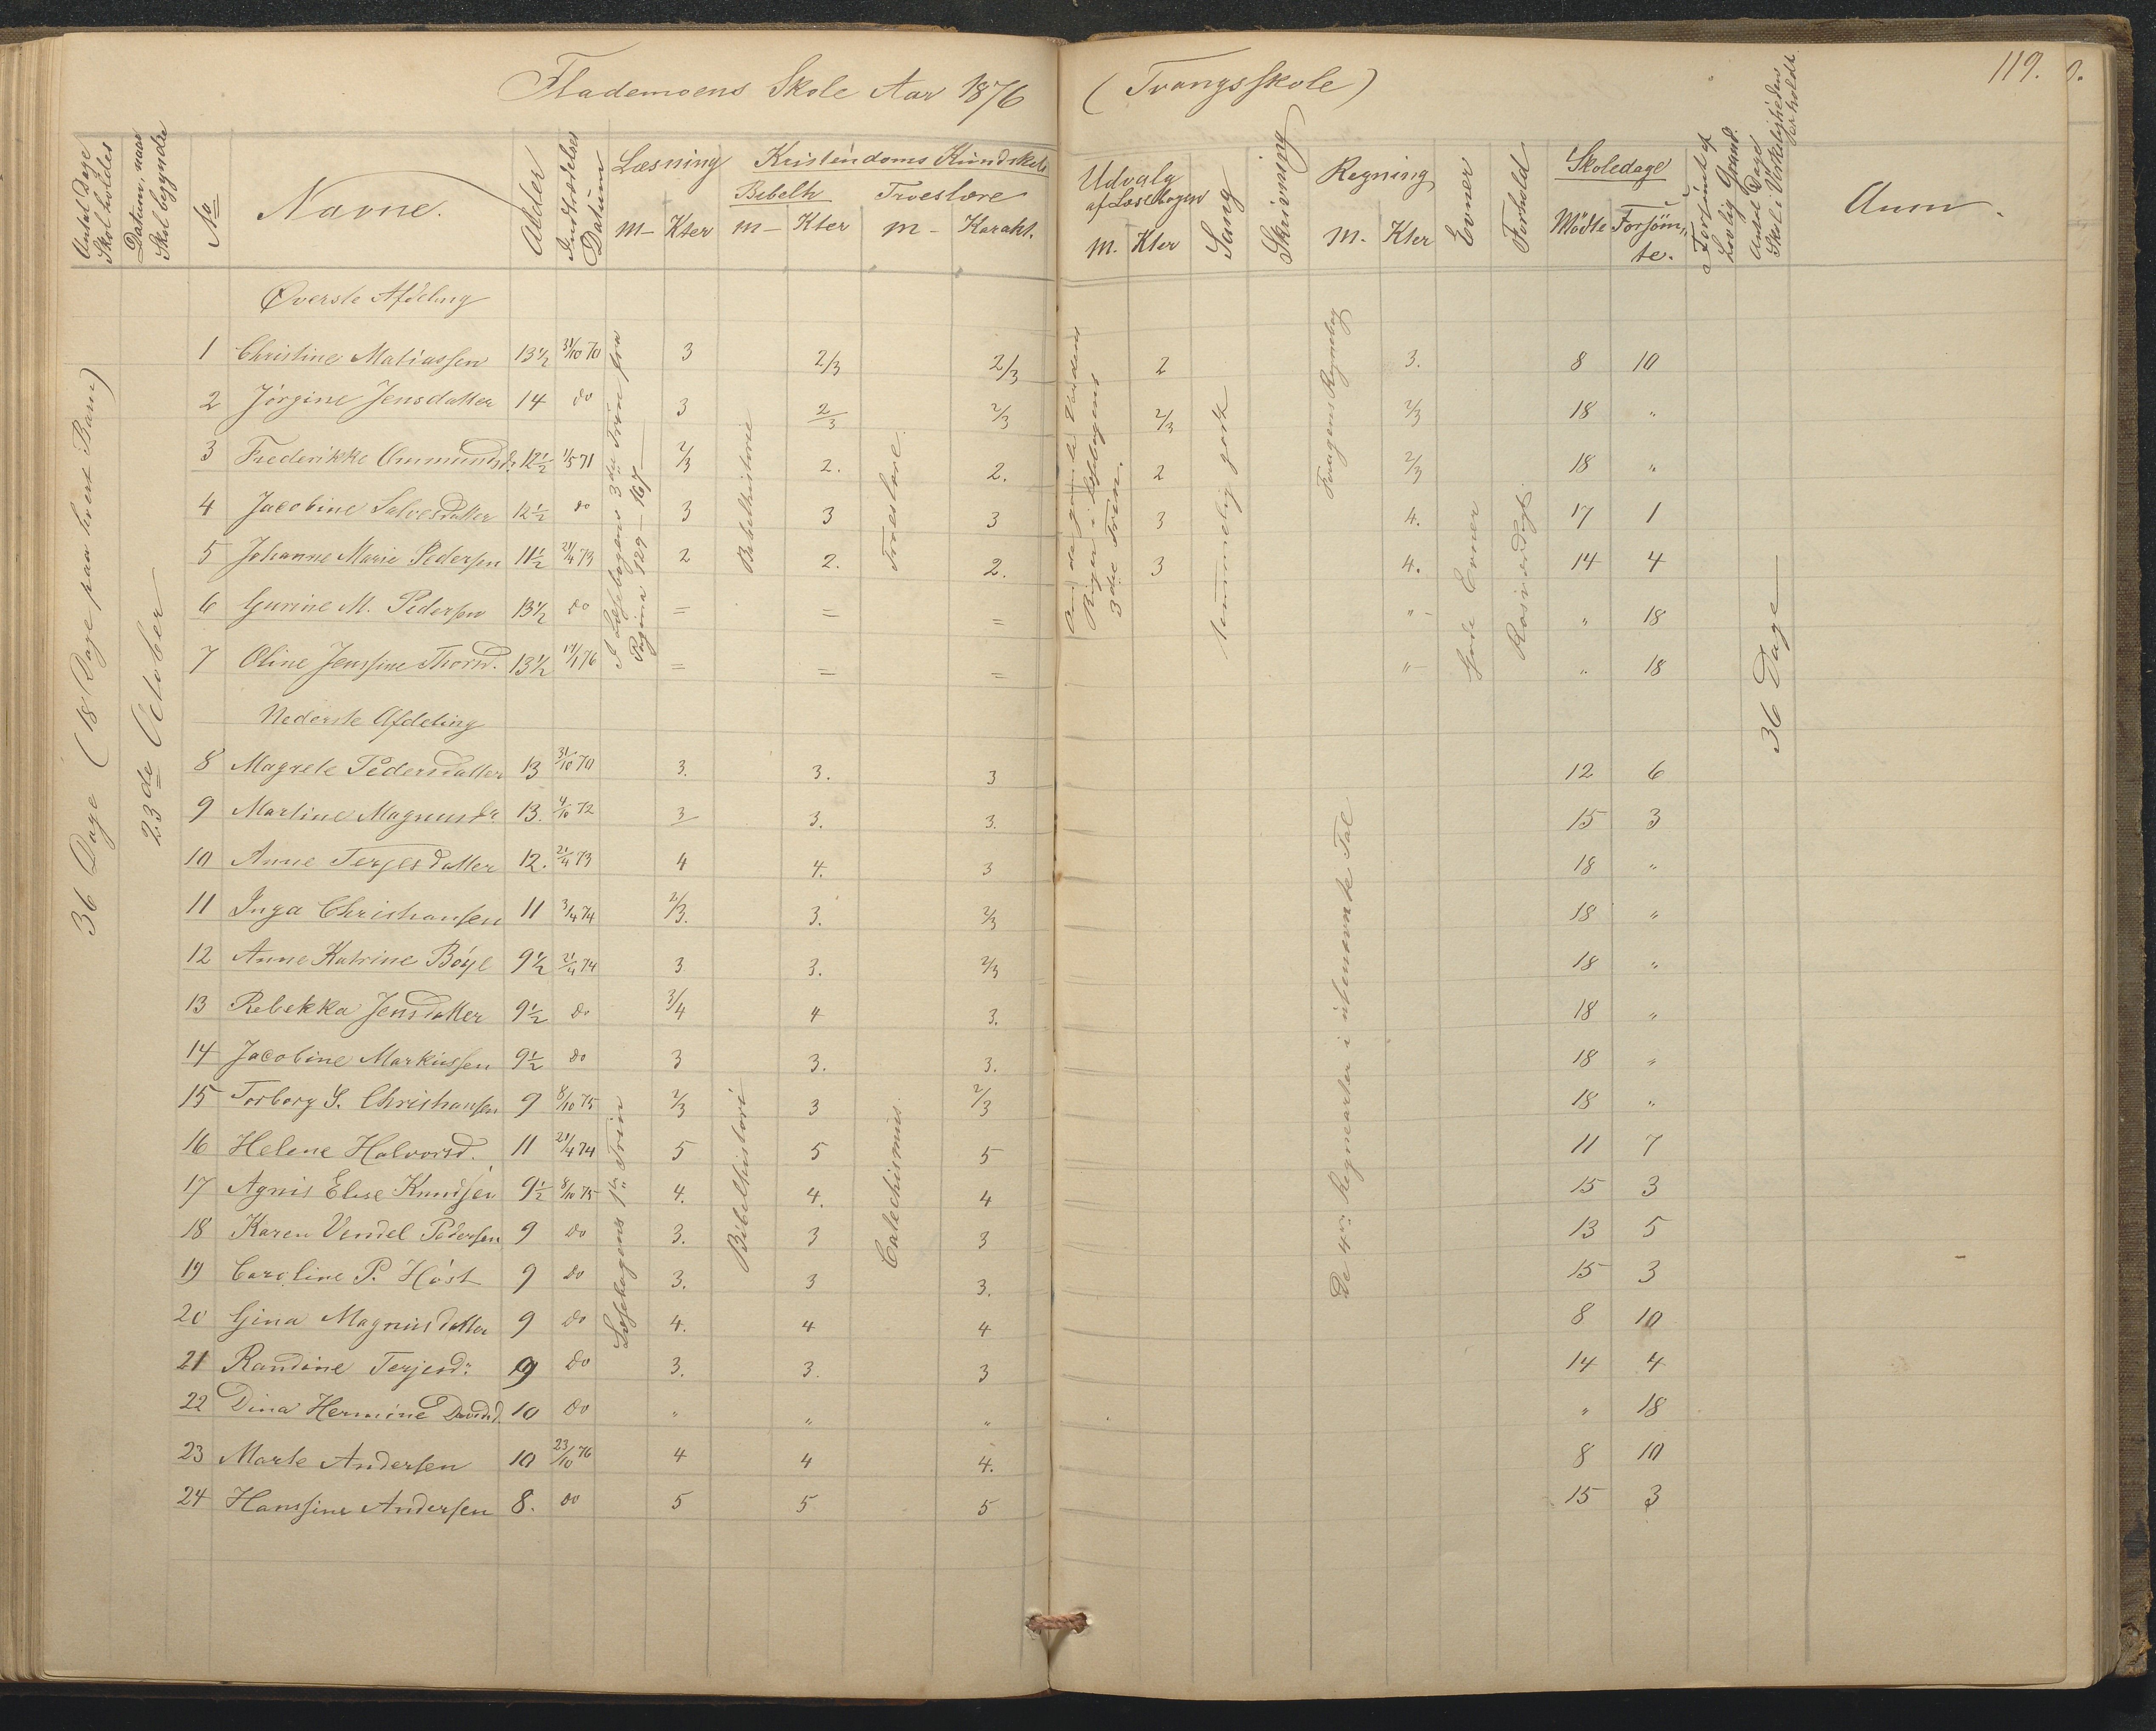 Flademoens Skole Aar 1876 (Tvangsskole) 119.
Antal Dage Skol holdes
Datum, naar Skol begyndte
No
Navne.
Alder
Indtrædelses Datum
Læsning
M— Kter
Kristendoms Kundskab
Bibelh
M— Kter
Troeslære
M— Karakt.
Udvalg af Læsebogen
M. Kter
Sang
Skrivning
Regning
M. Kter
Evner
Forhold
Skoledage
Mödte Forsömte.
Forsömt af Lovlig Grund.
Antal Dage Skol i Virkeligheden er holdt
Anm.
36 Dage (18 Dage paa hvert Barn)
23de October
Øverste Afdeling
I Læsebogens 3die Trin fra Pagina 129—167
Bibelhistorie
Troeslære.
3die Trin.
temmelig godt
Gode Evner
Rosværdigt.
36 Dage
1 Christine Matiassen 13½ 31/10 70 3 2/3 2/3 2 3. 8 10
2 Jörgine Jensdatter 14 do 3 2/3 2/3 2/3 2/3 18 "
3 Frederikke Ommundsdr 12½ 1/5 71 2/3 2. 2. 2 2/3 18 "
4 Jacobine Salvesdatter 12½ do 3 3 3 3 4. 17 1
5 Johanne Marie Pedersen 11½ 21/4 73 2 2. 2. 3 4. 14 4
6 Gurine M. Pedersen 13½ do = = = " " 18
7 Oline Jenssine Thorsd. 13½ 17/1 76 = = = " " 18
Nederste Afdeling
Læsebogens 1ste Trin
Bibelhistorie
Catechismus.
De 4re Regnearter i ubenævnte Tal
8 Magrete Pedersdatter 13 31/10 70 3. 3. 3 12 6
9 Martine Magnusdr 13. 4/10 72 3 3. 3. 15 3
10 Anne Terjesdatter 12. 21/4 73 4 4. 3 18 "
11 Inga Christiansen 11 3/4 74 2/3. 3. 2/3 18 "
12 Anne Katrine Böye 9½ 21/4 74 3 3. 2/3 18 "
13 Rebekka Jensdatter 9½ do 3/4 4 3. 18 "
14 Jacobine Markussen 9½ do 3 3. 3. 18 "
15 Torborg S. Christiansen 9 8/10 75 2/3 3 2/3 18 "
16 Helene Halvorsd. 11 21/4 74 5 5 5 11 7
17 Agnis Elise Knudsen 9½ 8/10 75 4. 4. 4 15 3
18 Karen Vendel Pedersen 9 do 3. 3 3 13 5
19 Caroline P. Höst 9 do 3. 3 3. 15 3
20 Gina Magnusdatter 9 do 4. 4 4 8 10
21 Randine Terjesdr 9 do 3. 3. 3 14 4
22 Dina Hermine Davidsd. 10 do " " " " 18
23 Marte Andersen 10 23/10 76 4 4 4. 8 10
24 Hanssine Andersen 8. do 5 5 5 15 3